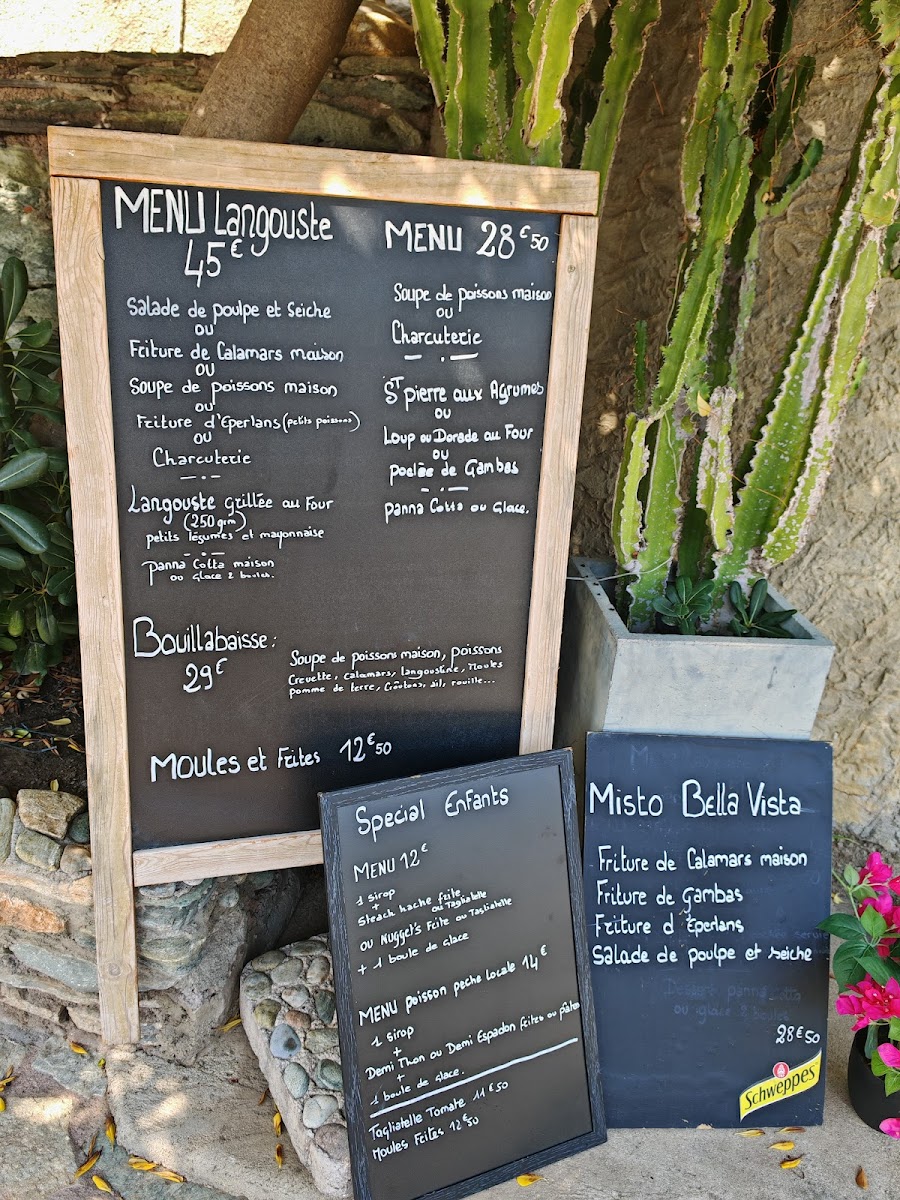 MENU Langouste
45€
Salade de poulpe et Seiche
ou
Friture de Calamars maison
ou
Soupe de poissons maison
ou
Friture d'Eperlans (petits poissons)
ou
Charcuterie
Langouste grillée au Four
(250 grm)
petits légumes et mayonnaise
panna Cotta maison
ou Glace 2 boules.
MENU 28€50
Soupe de poissons maison
ou
Charcuterie
St pierre aux Agrumes
ou
Loup ou Dorade au Four
ou
poelée de Gambas
panna Cotta ou Glace.
Bouillabaisse:
29€
Soupe de poissons maison, poissons
Crevette, calamars, langoustine, Moules
pomme de terre, Croutons, ail, rouille...
Moules et Frites 12€50
Special Enfants
MENU 12€
1 sirop
+
Steack hache frite
ou Tagliatelle
ou Nugget's Frite ou Tagliatelle
+ 1 boule de glace
MENU poisson peche locale 14€
1 sirop
+
Demi Thon ou Demi Espadon frites ou pâtes
+
1 boule de glace.
Tagliatelle Tomate 11€50
Moules Frites 12€50
Misto Bella Vista
Friture de Calamars maison
Friture de gambas
Friture d'Eperlans
Salade de poulpe et seiche
Dessert panna Cotta
ou glace 2 boules
28€50
Schweppes